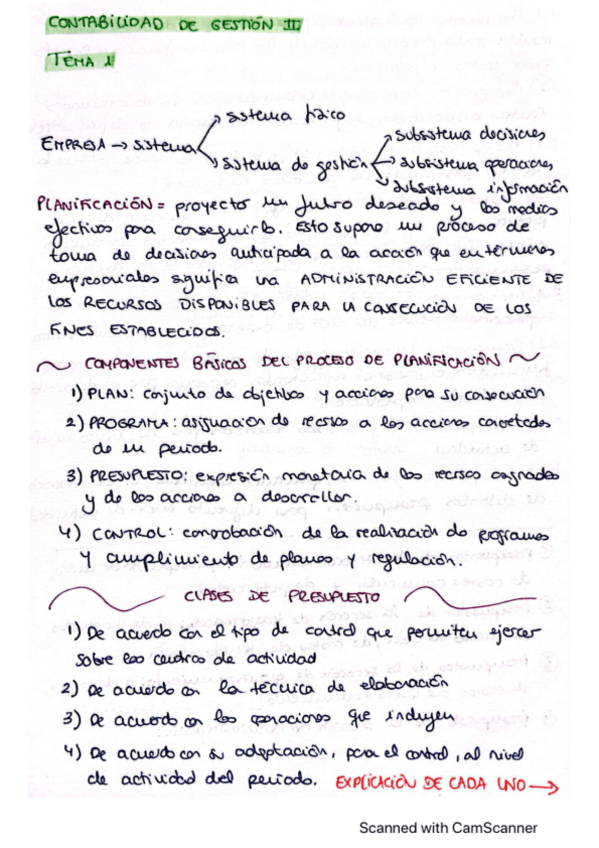 CONTABILIDAD DE GESTIÓN III
TEMA 1
sistema físico
EMPRESA → sistema
sistema de gestión
subsistema decisiones
subsistema operaciones
subsistema información
PLANIFICACIÓN = proyecto un futuro deseado y los medios
efectivos para conseguirlo. Esto supone un proceso de
toma de decisiones anticipada a la acción que en términos
empresariales significa una ADMINISTRACIÓN EFICIENTE DE
LOS RECURSOS DISPONIBLES PARA LA CONSECUCIÓN DE LOS
FINES ESTABLECIDOS.
COMPONENTES BÁSICOS DEL PROCESO DE PLANIFICACIÓN
1) PLAN: conjunto de objetivos y acciones para su consecución
2) PROGRAMA: asignación de recursos a las acciones concretadas
de un periodo.
3) PRESUPUESTO: expresión monetaria de los recursos asignados
y de las acciones a desarrollar.
4) CONTROL: comprobación de la realización de programas
y cumplimiento de planes y regulación.
CLASES DE PRESUPUESTO
1) De acuerdo con el tipo de control que permiten ejercer
sobre los centros de actividad
2) De acuerdo con la técnica de elaboración
3) De acuerdo con las operaciones que incluyen
4) De acuerdo con su adaptación, para el control, al nivel
de actividad del periodo. EXPLICACIÓN DE CADA UNO →
Scanned with CamScanner